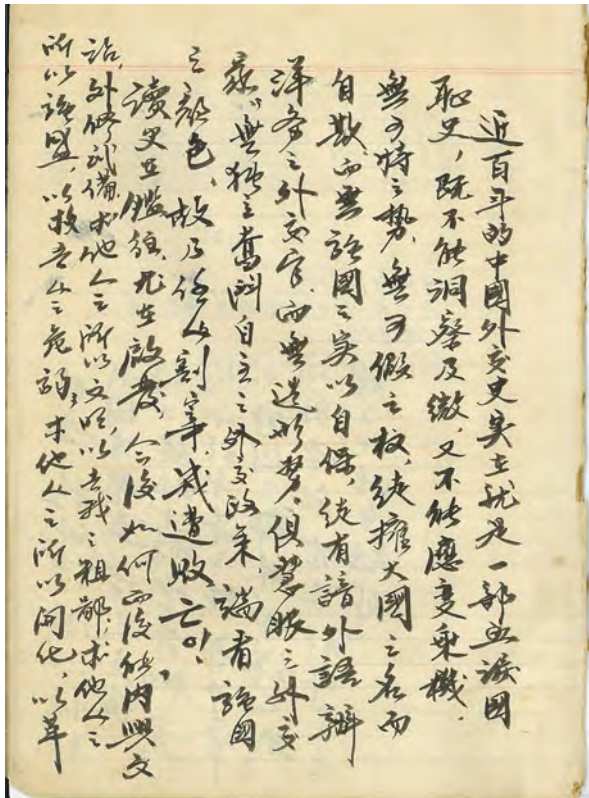 近百年的中國外交史实在就是一部
恥史，既不能洞察及微，又不能應變乘機，
無可恃之勢，無可假之权，徒擁大國之名而
自欺，而無強國之实以自保，徒有諳外語辦
洋务之外交官，而無造形势，俱慧眼之外交
家，無独立奮鬥自主之外交政策，端看強國
之顏色，故乃任人割宰，幾遭敗亡，
讀史在鑑往，尤在啟發，今後如何而後能内興文
治，外修武備，求他人之所以文明，以去我之粗鄙；求他人之
所以強盛，以救吾人之危弱；求他人之所以開化，以革